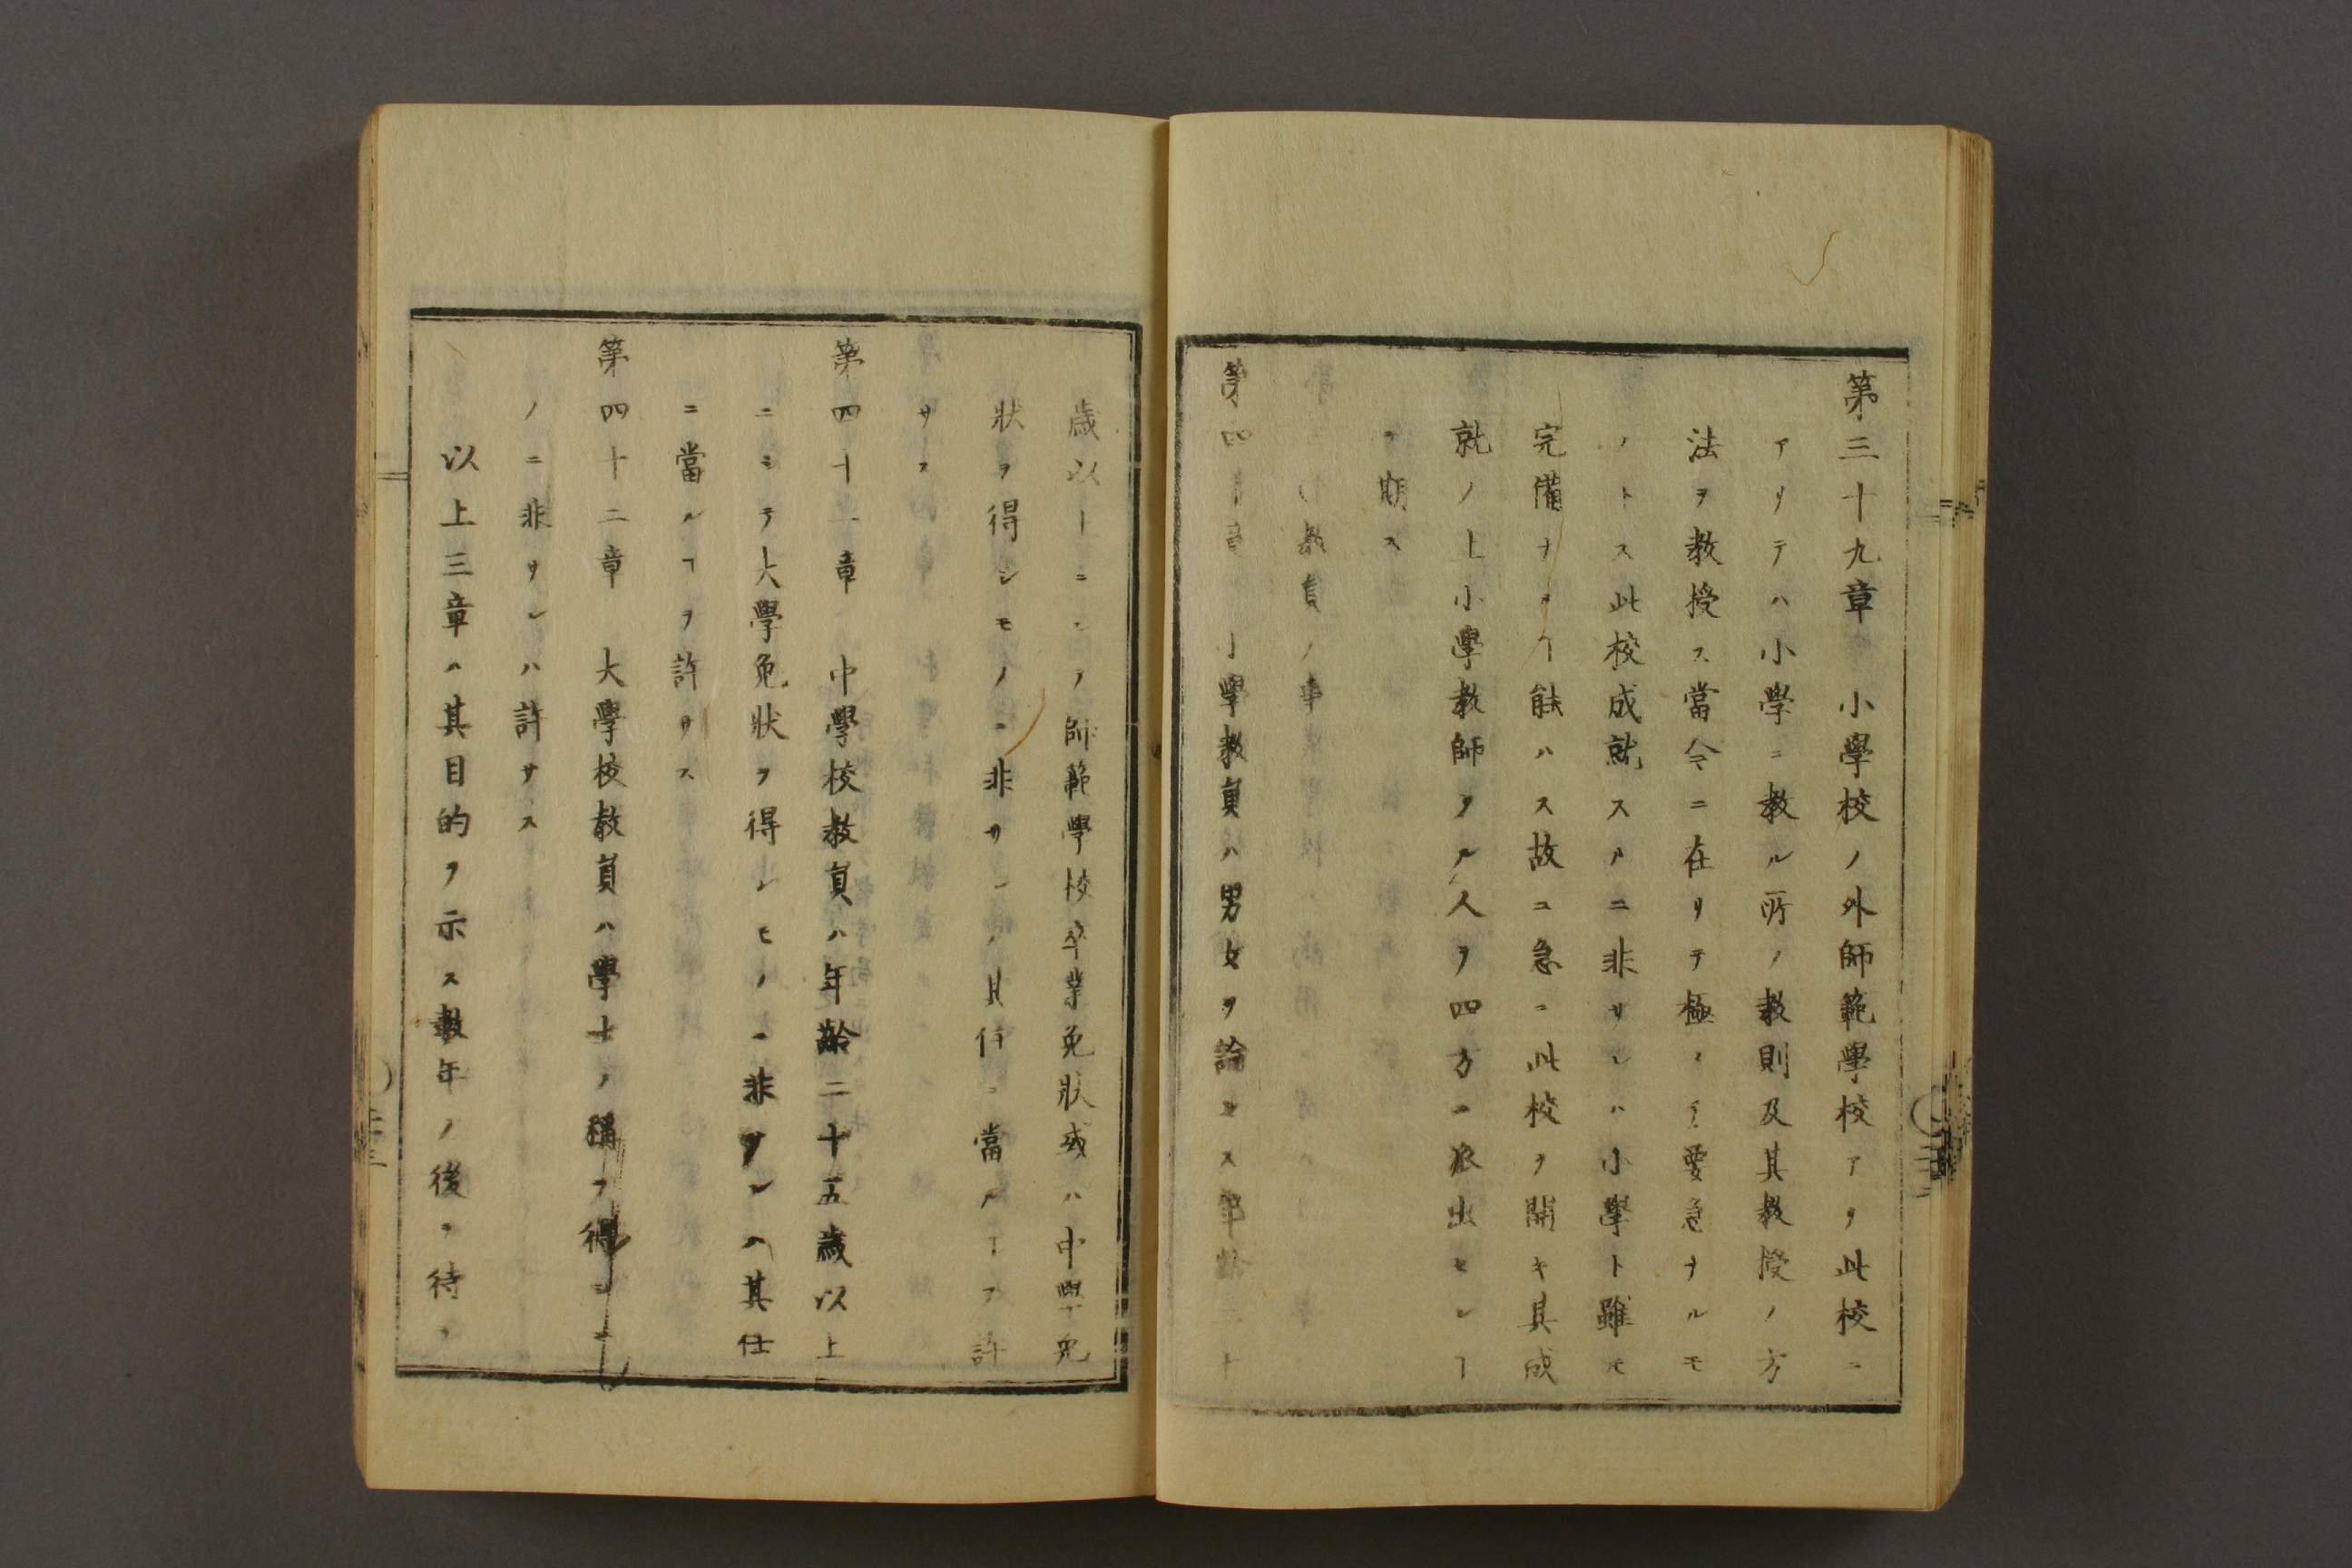 第三十九章　小學校ノ外師範學校アリ此校ニ
アリテハ小學ニ教ル所ノ教則及其教授ノ方
法ヲ教授ス當今ニ在リテ極メテ要急ナルモ
ノトス此校成就スルニ非サレハ小學ト雖モ
完備ナルヿ能ハス故ニ急ニ此校ヲ開キ其成
就ノ上小學教師タル人ヲ四方ニ派出センヿ
ヲ期ス
第四十章　小學教員ハ男女ヲ論セス年齡二十
歳以上ニシテ師範學校卒業免狀或ハ中學免
狀ヲ得シモノニ非サレハ其任ニ當ルヿヲ許
サス
第四十一章　中學校教員ハ年齡二十五歳以上
ニシテ大學免狀ヲ得シモノニ非サレハ其任
ニ當ルヿヲ許サス
第四十二章　大學校教員ハ學士ノ稱ヲ得シモ
ノニ非サレハ許サス
以上三章ハ其目的ヲ示ス數年ノ後ヲ待ツ